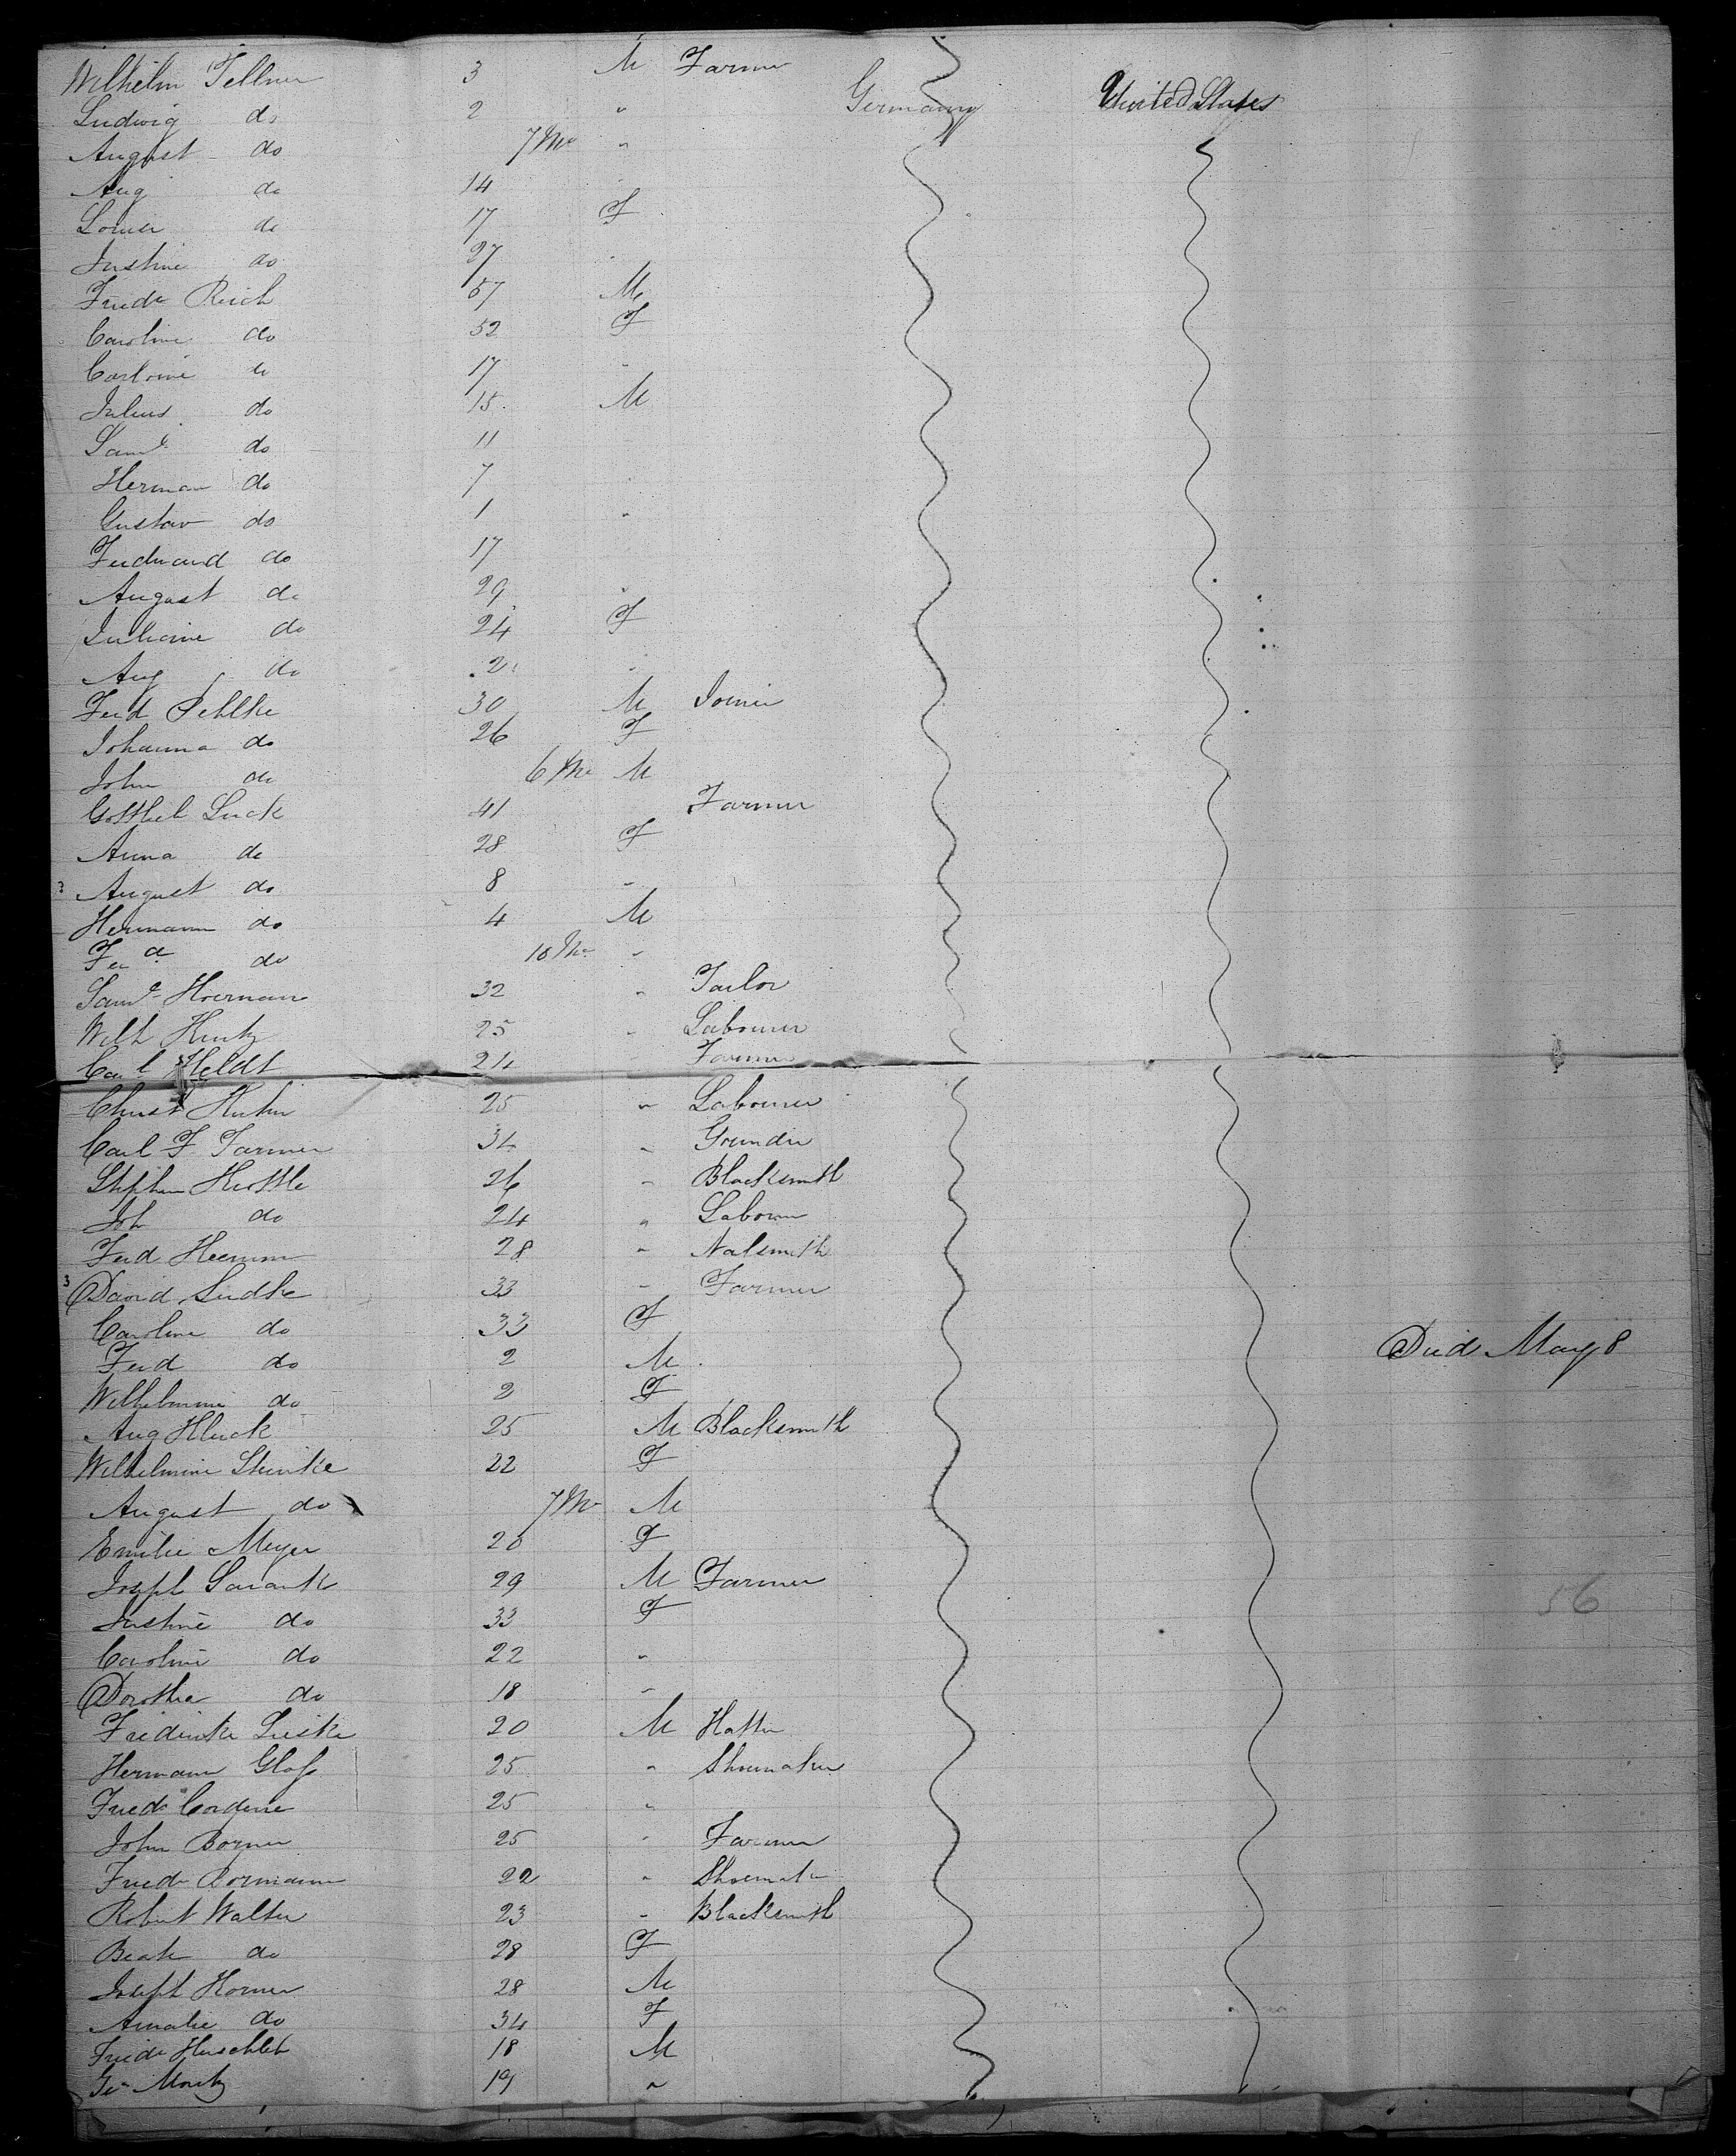 Wilhelm Tellner 3 M Farmer
Ludwig do 2 " Germany United States
August do 7 Mo "
Aug do 14
Louise do 17 F
Justine do 27
Friedr Reich 57 M
Caroline do 52 F
Carloine do 17 "
Julius do 15 M
Saml do 11
Herman do 7
Gustav do 1 "
Ferdinand do 17
August do 29 "
Juliane do 24 F
Aug do 2 "
Ferd Pehlke 30 M Joiner
Johanna do 26 F
John do 6 Mo M
Gottlieb Luck 41 Farmer
Anna do 28 F
August do 8 "
Hermann do 4 M
Ferd do 10 Mo "
Saml Hoermann 32 " Tailor
Wilh Hintz 25 " Labourer
Carl Heldt 24 Farmer
Christ Kuhn 25 " Labourer
Carl F Farmer 34 "
Stephan Kestle 26 " Blacksmith
Joh do 24 " Labourer
Ferd 28 " Nalsmith
3 David Ludke 33 " Farmer
Caroline do 33 F
Ferd do 2 M Died May 8
Wilhelmine do 2 F
Aug Kluck 25 M Blacksmith
Wilhelmine Steinke 22 F
August do 7 Mo M
Emilie Meyer 28 F
Joseph 29 M Farmer
Justine do 33 F 56
Caroline do 22 "
Dorothea do 18 "
Friderike Lieske 20 M Hatter
Hermann Glass 25 " Shoemaker
Friedr 25 "
John Borner 25 " Farmer
Friedr Bormann 22 " Shoemaker
Robert Walter 23 " Blacksmith
Beate do 28 F
Joseph Horner 28 M
Amalie do 34 F
Friedr 18 M
Geo Moritz 19 "